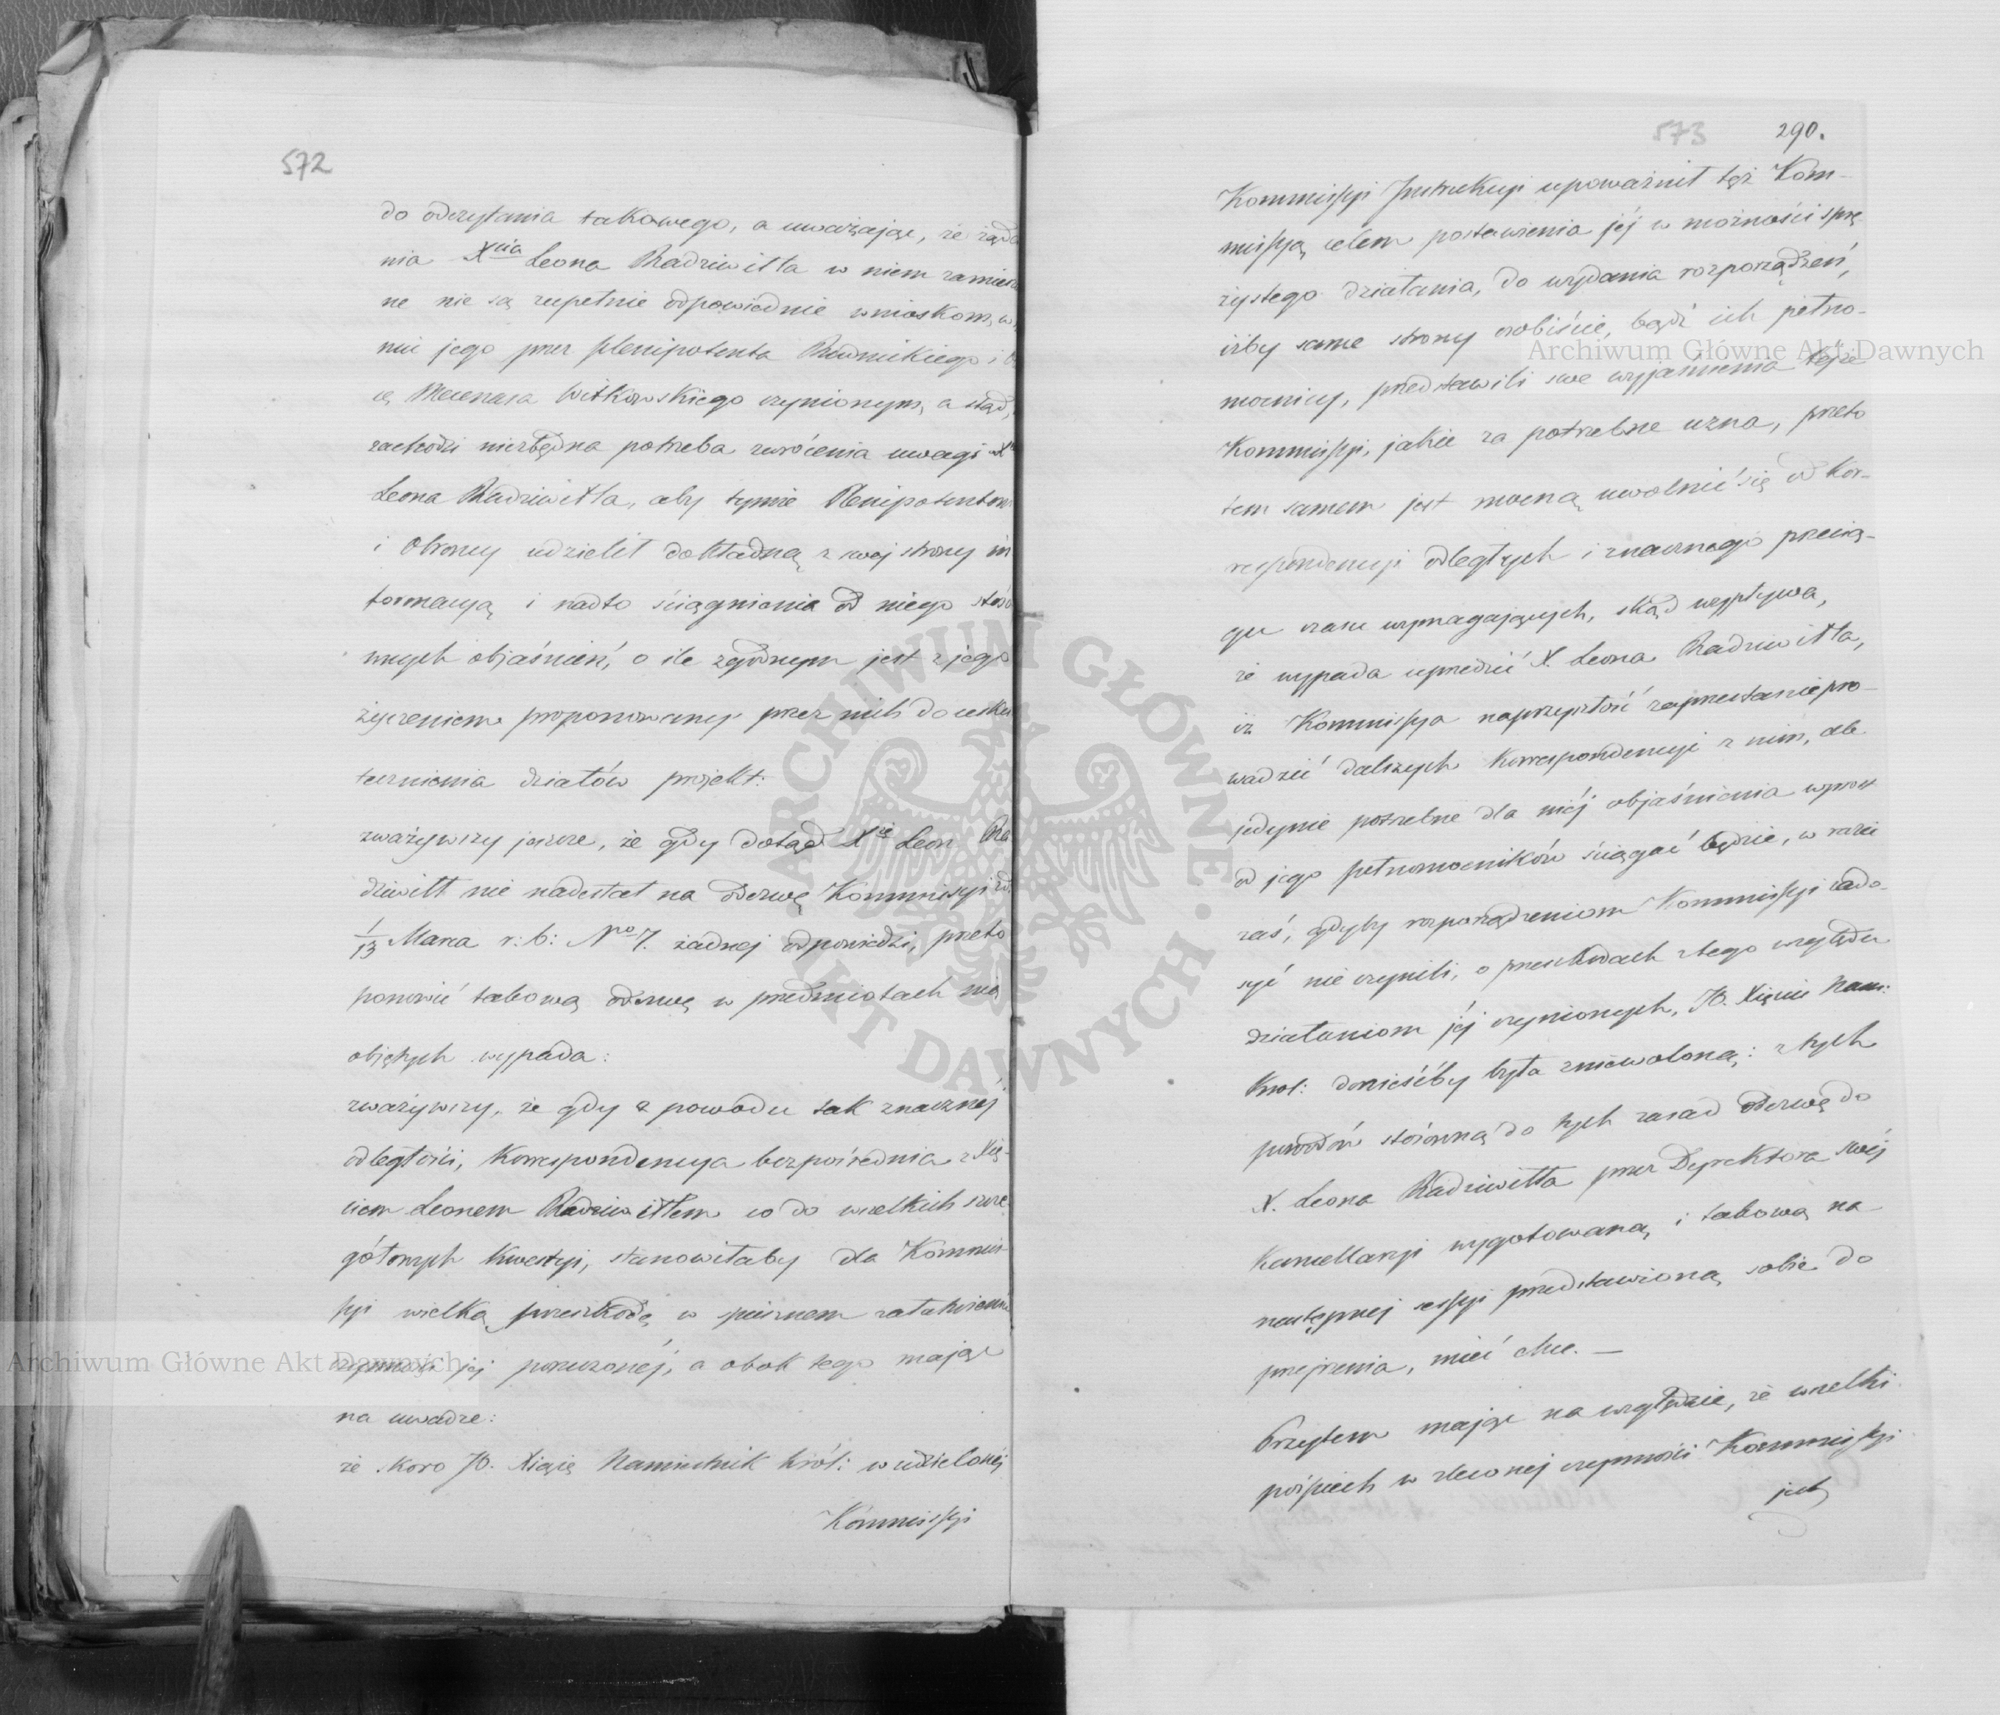 572
do odczytania takowego, a uważając, że żąda
nia Xcia Leona Radziwiłła w niem zamiesz
ne nie są zupełnie odpowiednie wnioskom, w
niu jego przez plenipotenta Rudnickiego i
cę Mecenasa Witkowskiego czynionym, a stąd,
zachodzi niezbędna potrzeba zwrócenia uwagi X
Leona Radziwiłła, aby tymże Plenipotentom
i Obrońcy udzielił dokładną z swej strony in
formacyą i nadto ściągnienia od niego stoso
wnych objaśnień, o ile zgodnym jest z jego
życzeniem proponowany przez nich do usku
tecznienia działów projekt:
zważywszy jeszcze, że gdy dotąd Xże Leon Ra
dziwiłł nie nadesłał na odezwę Kommissyi zd.
1/13 Marca r: b: No 7. żadnej odpowiedzi, przeto
ponowić takową odezwę w przedmiotach nią
objętych wypada:
zważywszy, że gdy z powodu tak znacznej
odległości, Korrespondencya bezpośrednia z Xię-
ciem Leonem Radziwiłłem co do wszelkich szcze
gółowych kwestyi, stanowiłaby dla Kommis-
syi wielką przeszkodę w spiesznem załatwieniu
czynności jej poruczonéj, a obok tego mając
na uwadze:
że skoro JO. Xiąże Namiestnik Król: w udzielonéj
Kommissyi
573 290.
Kommissyi Instrukcyi upoważnił też Kom-
missyą celem postawienia jéj w możności sprę
żystego działania, do wydania rozporządzeń,
iżby same strony osobiście, bądź ich pełno-
mocnicy, przedstawili swe wyjaśnienia tejże
Kommissyi, jakie za potrzebne uzna, przeto
tem samem jest mocną uwolnić się od Kor-
respondencyi odległych i znacznego przecią-
gu czasu wymagających, skąd wypływa,
że wypada uprzedzić X. Leona Radziwiłła,
iż Kommissya naprzyszłość zaprzestanie pro-
wadzić dalszych Korrespondencyi z nim, ale
jedynie potrzebne dla niéj objaśnienia wprost
od jego pełnomocników ściągać będzie, w razie
zaś, gdyby rozporządzeniom Kommissyi zado-
syć nie czynili, o przeszkodach z tego względu
działaniom jéj czynionych, JO. Xięciu Nam:
Król: donieśćby była zniewoloną: z tych
powodów stósowną do tych zasad odezwę do
X. Leona Radziwiłła przez Dyrektora swéj
Kancellaryi wygotowaną, i takową na
następnej sessyi przedstawioną sobie do
przejrzenia, mieć chce. —
Przytem mając na względzie, że wszelki
pośpiech w zleconej czynności Kommissyi
jest
Archiwum Główne Akt Dawnych
Archiwum Główne Akt Dawnych
ARCHIWUM GŁÓWNE · AKT DAWNYCH ·